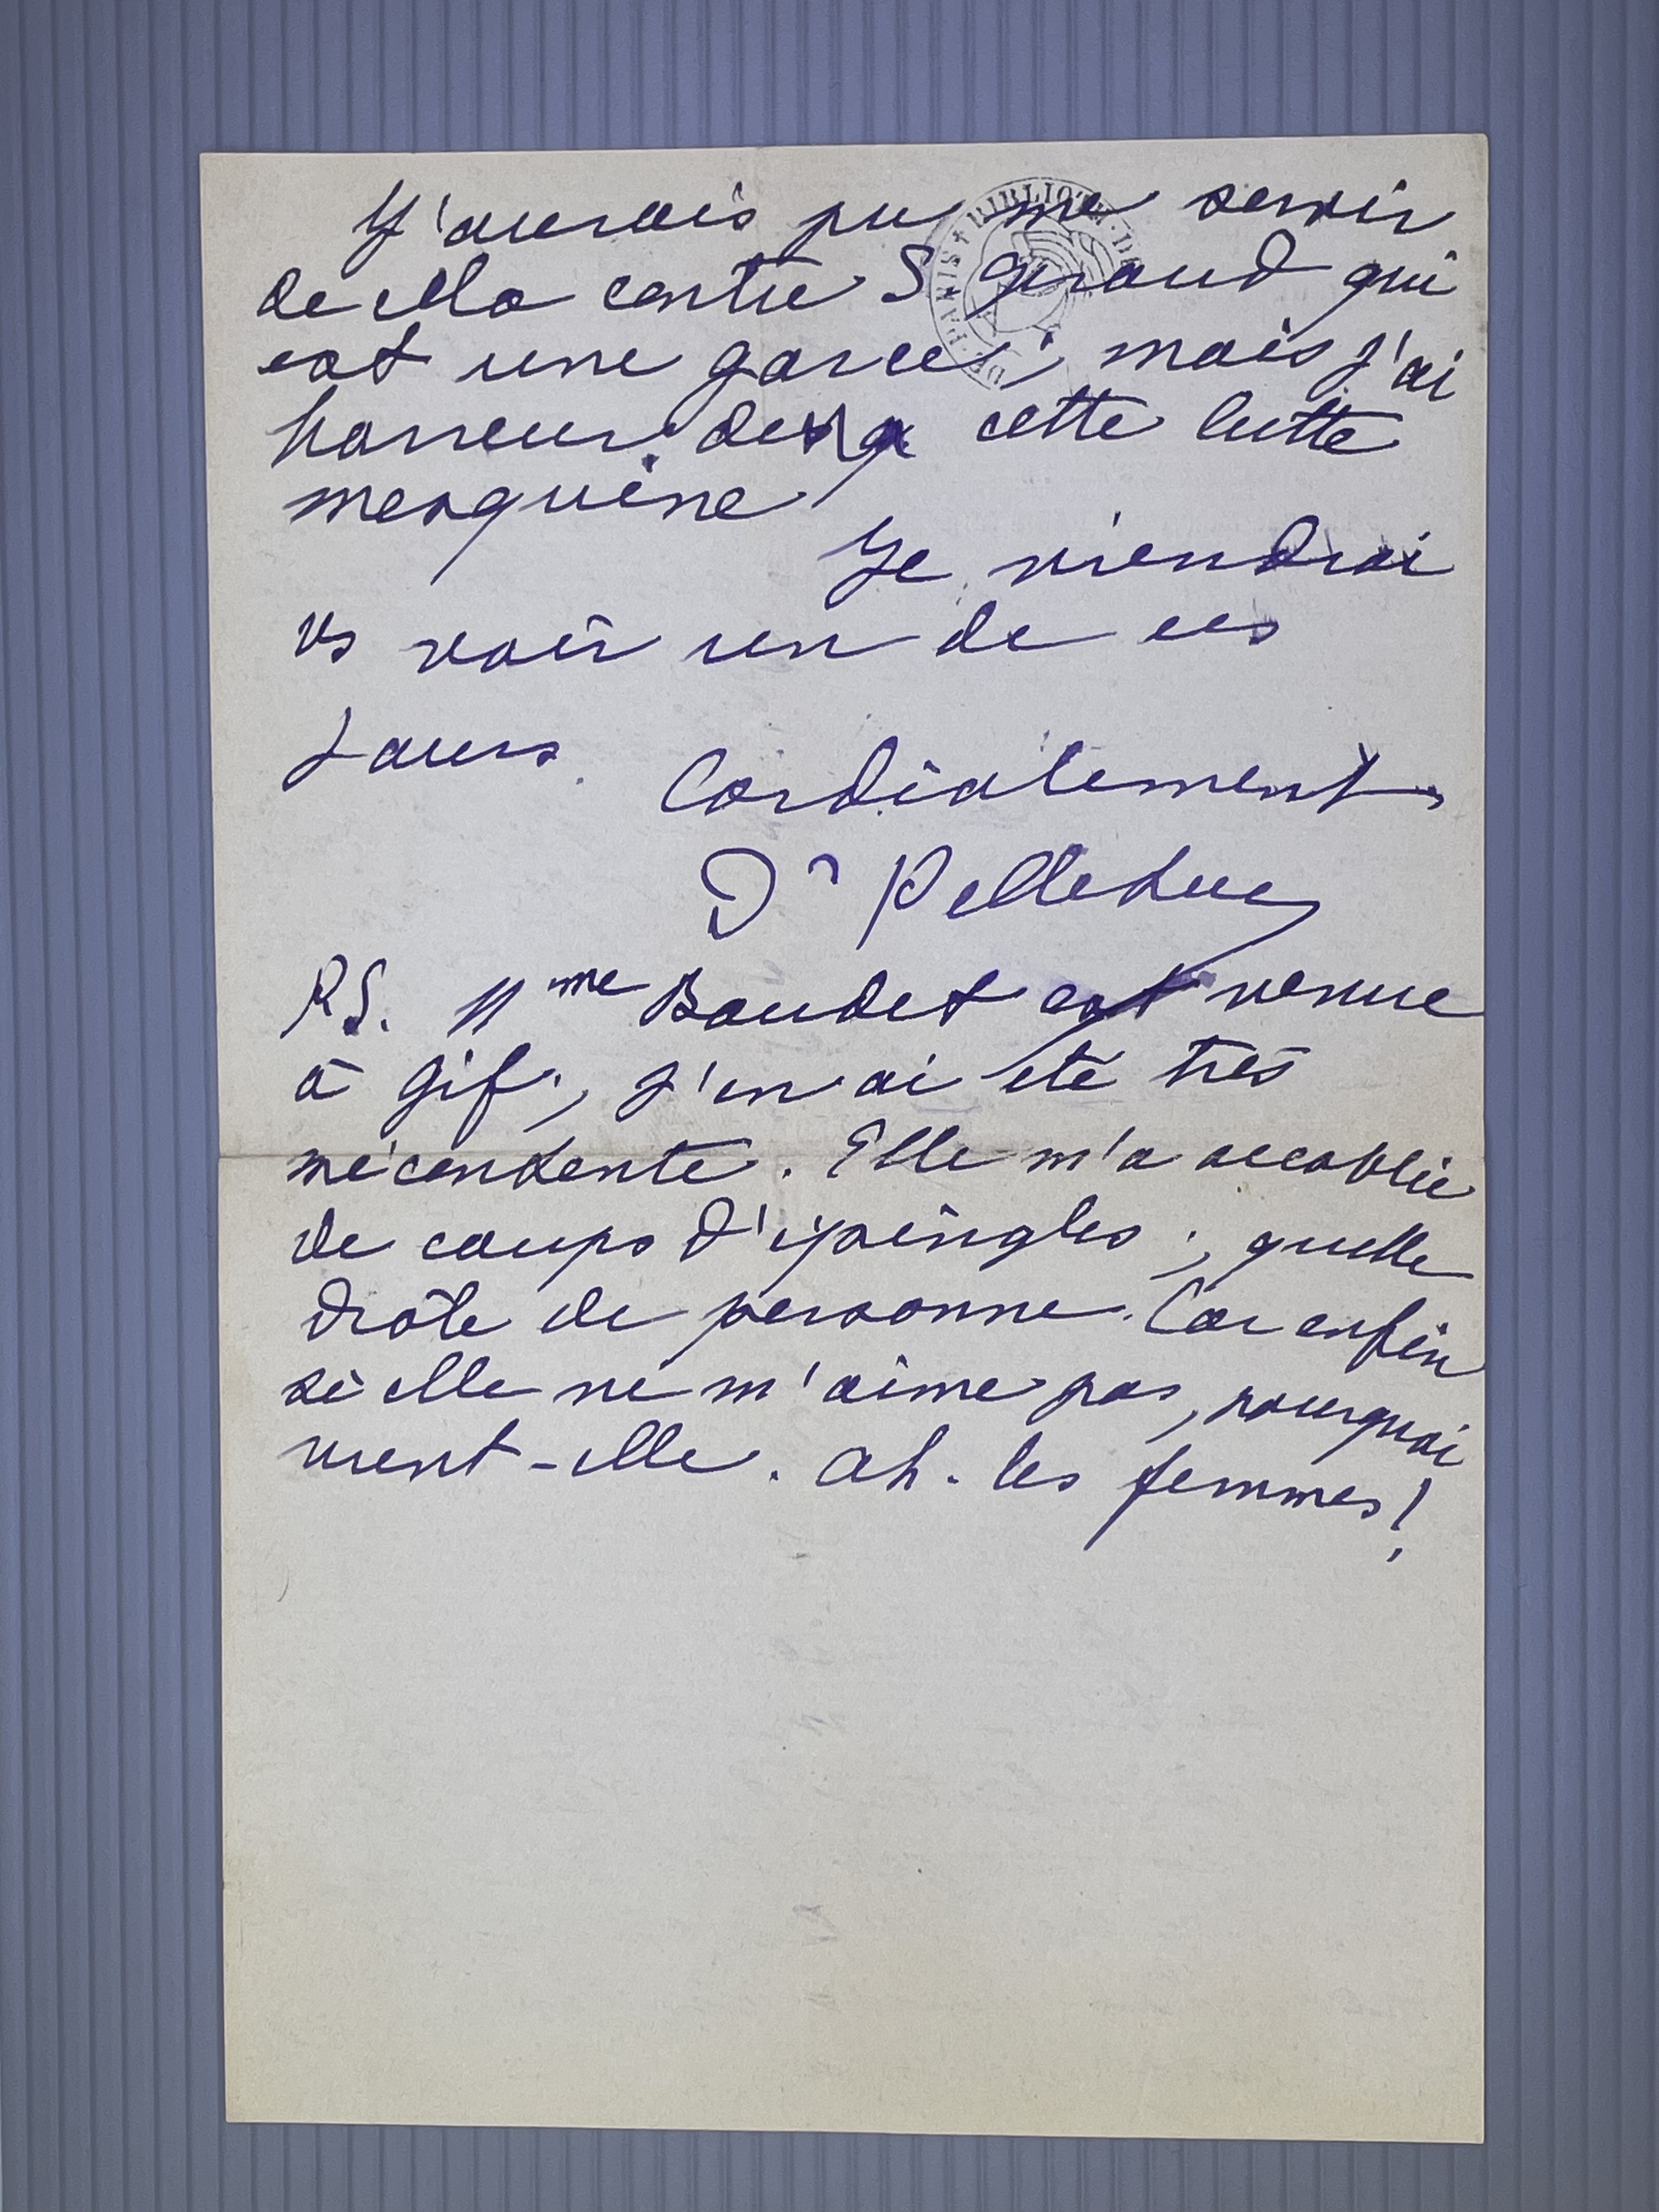 J'aurais pu me servir
de cela contre S Giraud qui
est une garce ; mais j'ai
horreur de cette lutte
mesquine
Je viendrai
vs voir un de ces
jours.
Cordialement
Dr Pelletier
P.S. Mme Boudet est venue
à Gif ; j'en ai été très
mécontente. Elle m'a accablée
de coups d'épingles ; quelle
drôle de personne. Car enfin
si elle ne m'aime pas, pourquoi
vient-elle. Ah. les femmes !
BIBLIOTH. D
DE PARIS